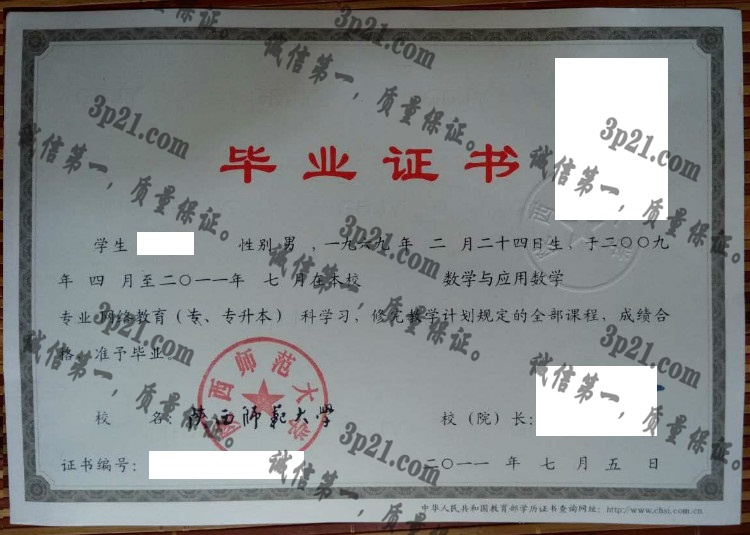 毕业证书
学生 性别 男 ,一九六九 年 二 月二十四日生，于二〇〇九
年 四 月至二〇一一年 七 月在本校 数学与应用数学
专业 网络教育（专、专升本） 科学习，修完教学计划规定的全部课程，成绩合
格，准予毕业。
陕西师范大学
校 名：陕西师范大学 校（院）长：
证书编号： 二〇一一 年 七 月 五 日
中华人民共和国教育部学历证书查询网址：http://www.chsi.com.cn
3p21.com
诚信第一，质量保证。
3p21.com
诚信第一，质量保证。
3p21.com
诚信第一，质量保证。
3p21.com
诚信第一，质量保证。
3p21.com
诚信第一，质量保证。
3p21.com
诚信第一，质量保证。
3p21.com
诚信第一，质量保证。
3p21.com
诚信第一，质量保证。